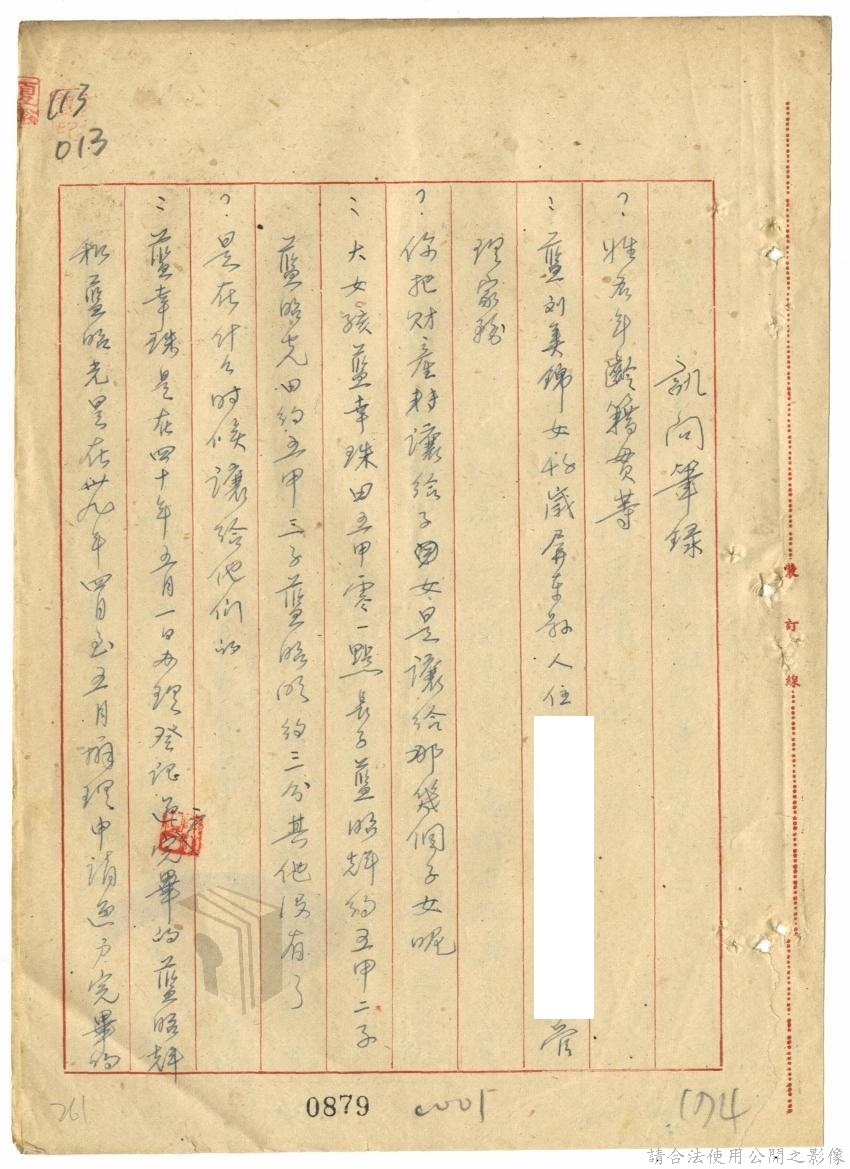 113
013
訊問筆錄
？姓名年齡籍貫等
：藍刘美錦女 歲屏東縣人住 管
理家務
？你把财產轉讓給子女是讓給那幾個子女呢
：大女孩藍幸珠田五甲零一點長子藍昭輝約五甲二子
藍昭光田約五甲三子藍昭 約三分其他没有了
？是在什么时候讓給他们的
：藍幸珠是在四十年五月一日办理登记 完畢的藍昭輝
和藍昭光是在卅九年四月至五月辦理申請過户完畢的
裝訂線
261
0879
0005
174
請合法使用公開之影像